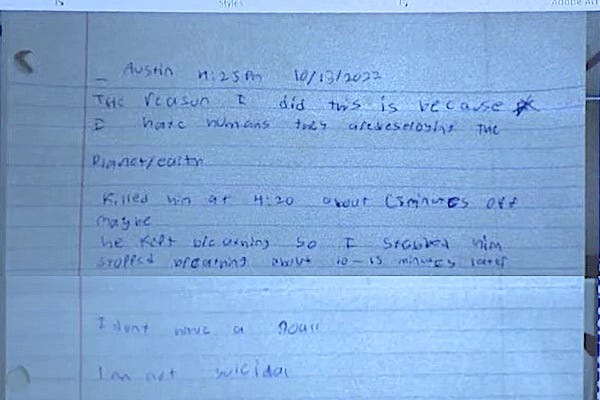 Styles
Austin 4:25PM 10/13/2022
The reason I did this is because
I hate humans they are destroying the
Planet/earth
Killed him at 4:20 about (5 minutes off
maybe
he kept breathing so I stabbed him
stopped breathing about 10-15 minutes later
I dont have a
I am not suicidal